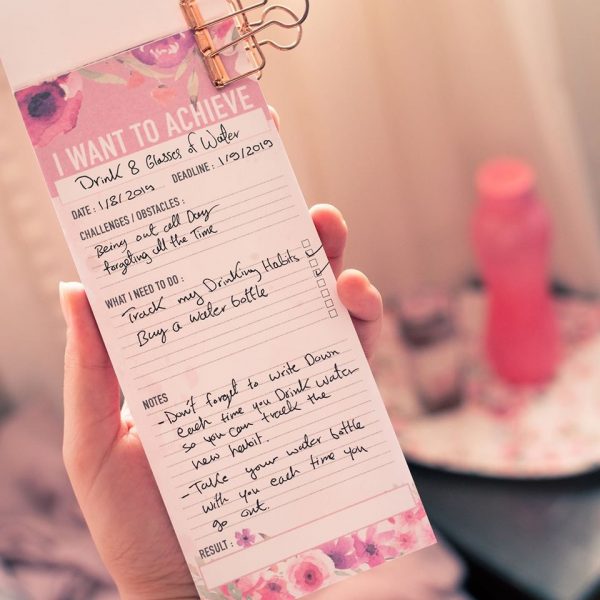 I WANT TO ACHIEVE
Drink 8 Glasses of Water
DATE : 1/8/2019 DEADLINE : 1/9/2019
CHALLENGES / OBSTACLES :
Being out all Day
forgeting all the Time
WHAT I NEED TO DO :
Track my Drinking Habits
Buy a water bottle
NOTES
- Don't forget to write Down
each time you Drink water
so you can track the
new habit.
- Take your water bottle
with you each time you
go out.
RESULT :